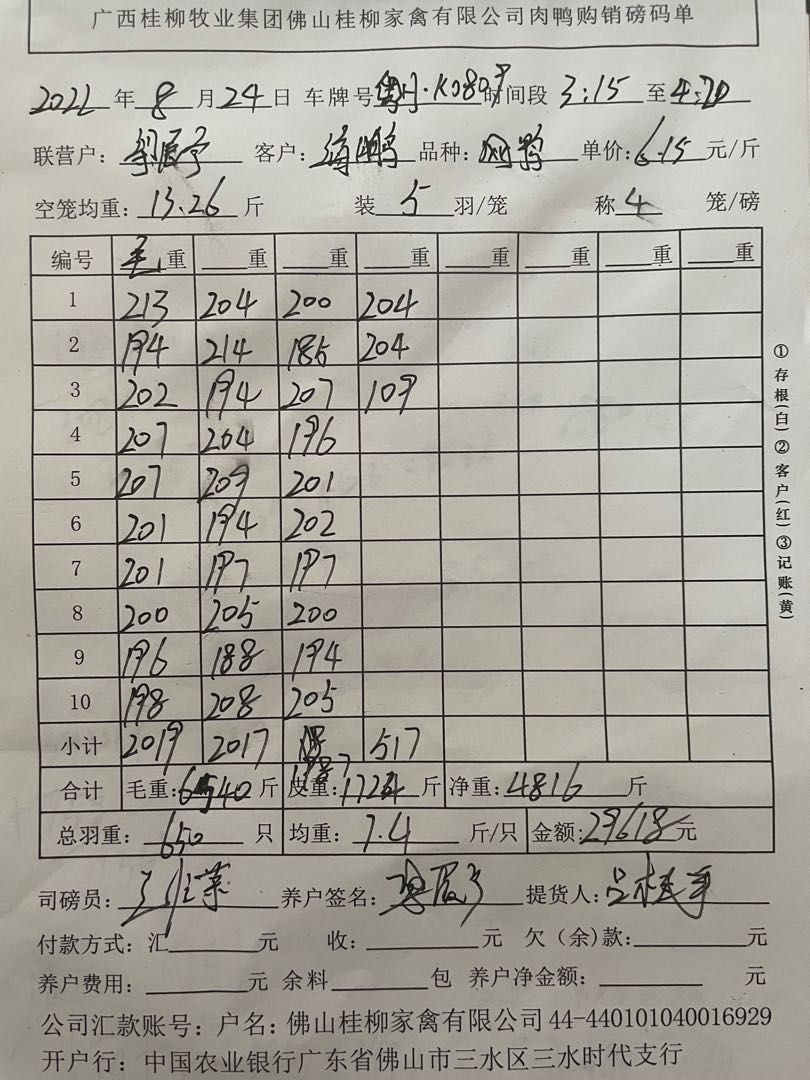 广西桂柳牧业集团佛山桂柳家禽有限公司肉鸭购销磅码单
2022 年 8 月 24 日 车牌号 K0809 时间段 3:15 至 4:20
联营户: 客户: 品种: 单价: 6.15 元/斤
空笼均重: 13.26 斤 装 5 羽/笼 称 4 笼/磅
编号 毛重 重 重 重 重 重 重 重
1 213 204 200 204
2 194 214 185 204
3 202 194 207 109
4 207 204 196
5 207 209 201
6 201 194 202
7 201 197 197
8 200 205 200
9 196 188 194
10 198 208 205
小计 2019 2017 1987 517
合计 毛重: 6540 斤 皮重: 1724 斤 净重: 4816 斤
总羽重: 650 只 均重: 7.4 斤/只 金额: 29618 元
司磅员: 养户签名: 提货人:
付款方式: 汇 元 收: 元 欠(余)款: 元
养户费用: 元 余料 包 养户净金额: 元
公司汇款账号: 户名: 佛山桂柳家禽有限公司 44-440101040016929
开户行: 中国农业银行广东省佛山市三水区三水时代支行
①存根(白)②客户(红)③记账(黄)